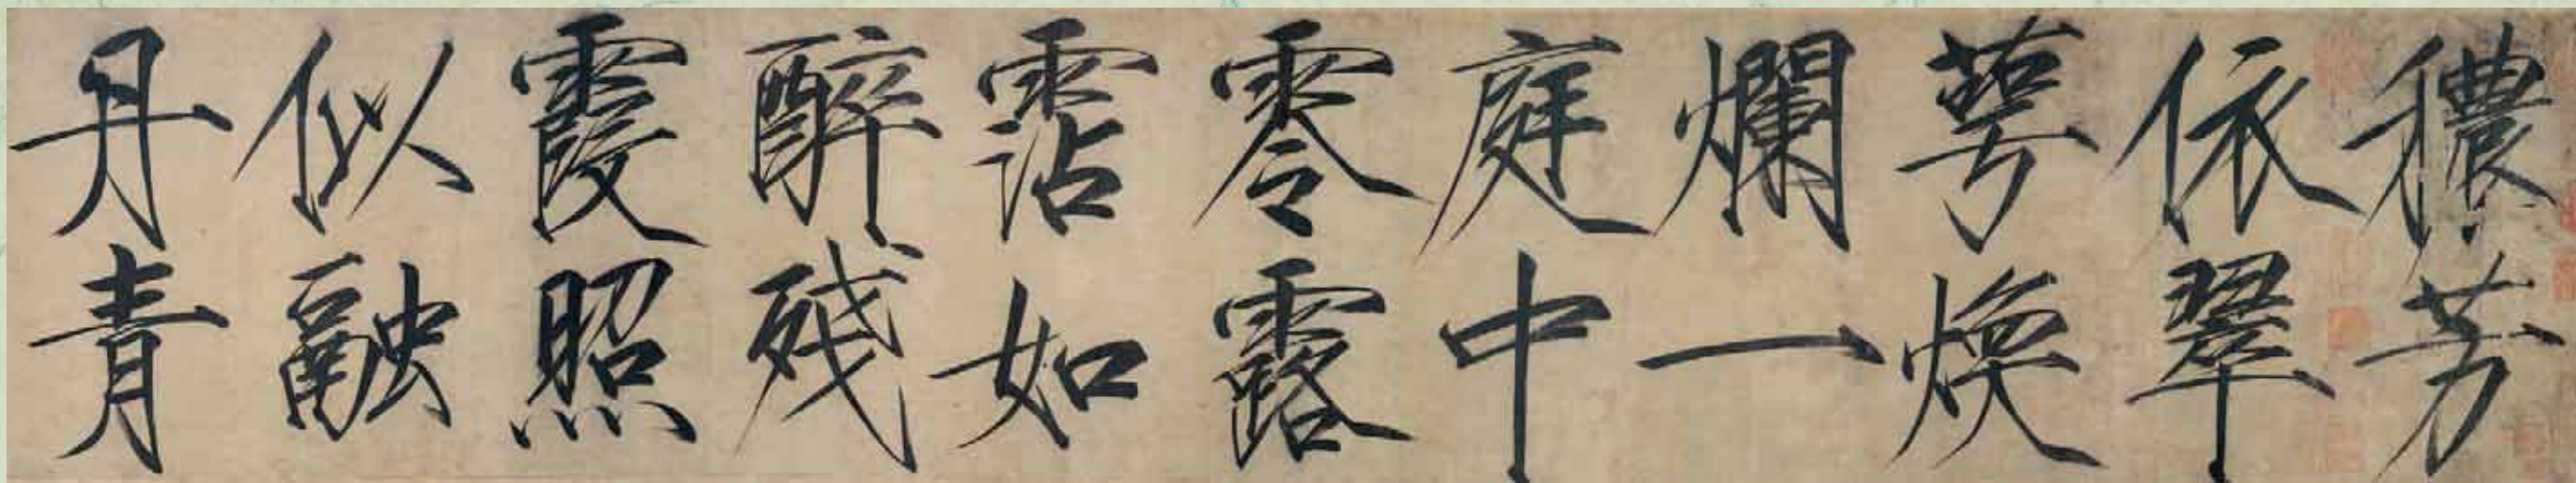 穠芳
依翠
萼煥
爛一
庭中
零露
霑如
醉殘
霞照
似融
丹青